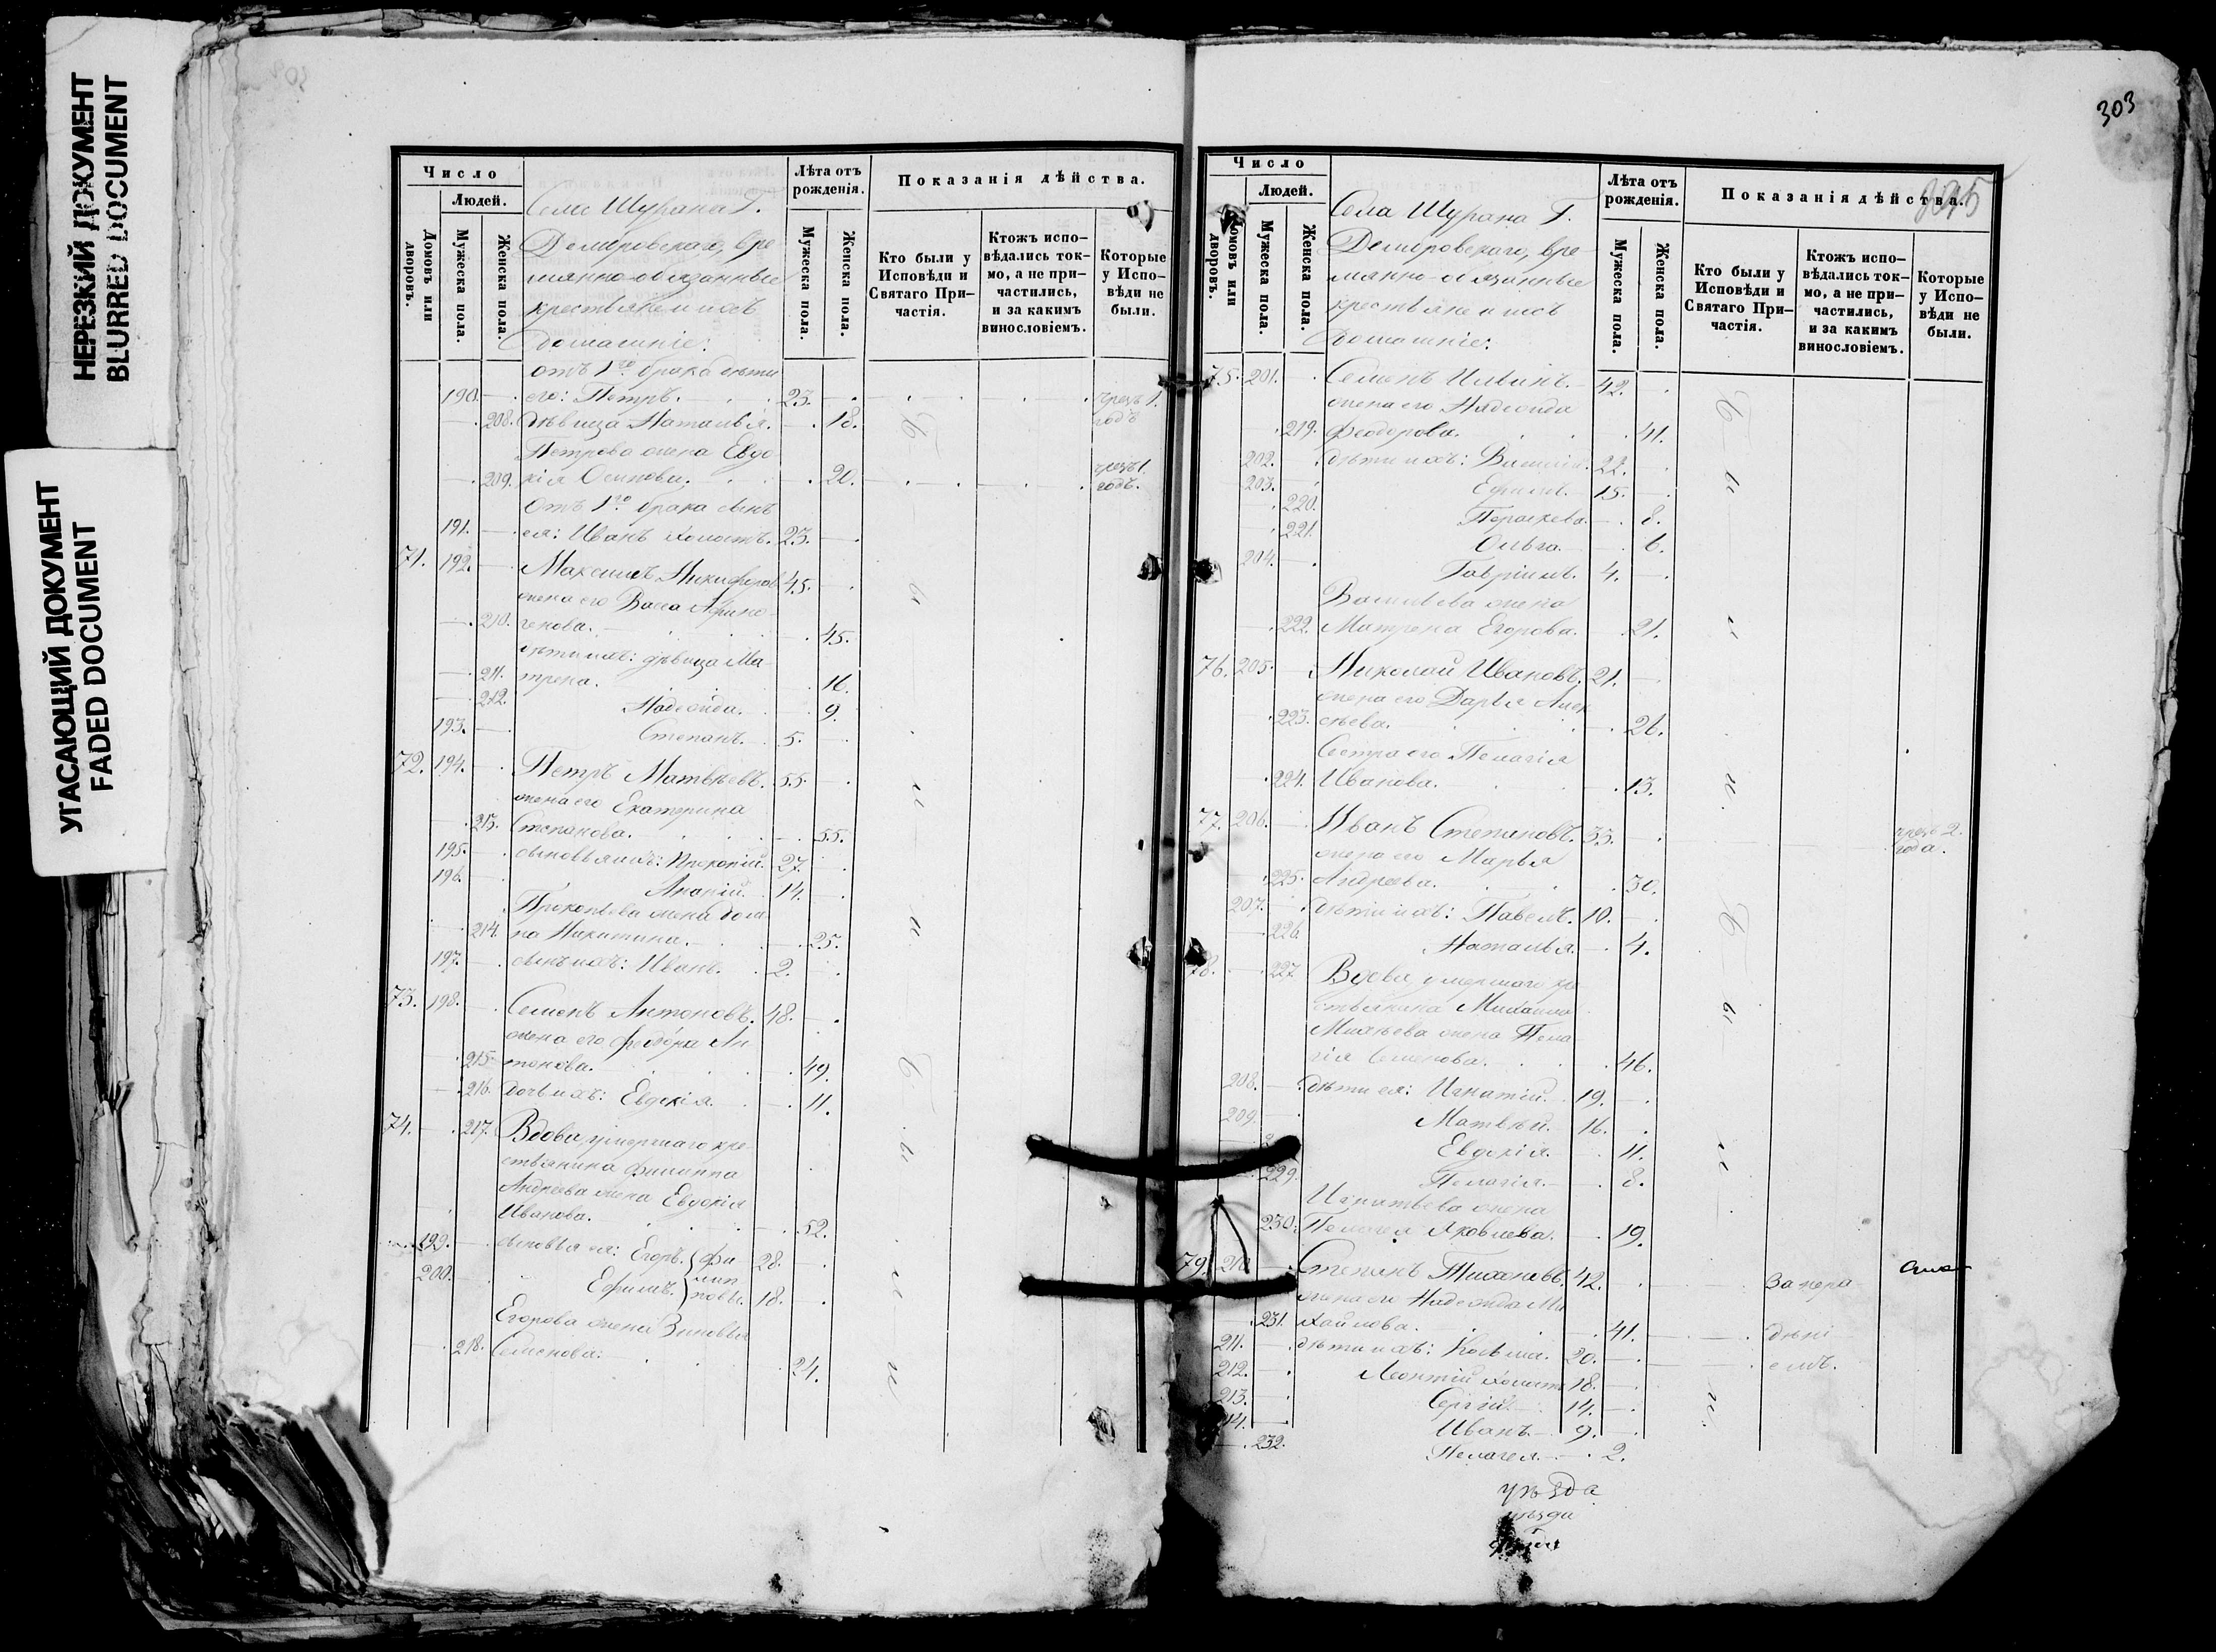 НЕРЕЗКИЙ ДОКУМЕНТ
BLURRED DOCUMENT
УГАСАЮЩИЙ ДОКУМЕНТ
FADED DOCUMENT
Число
Людей.
Домовъ или дворовъ.
Мужеска пола.
Женска пола.
Села Шурана Г.
временно-обязанные
крестьяне и ихъ
домашніе:
Лѣта отъ рожденія.
Мужеска пола.
Женска пола.
Показанія дѣйства.
Кто были у Исповѣди и Святаго При-частія.
Ктожъ испо-вѣдались ток-мо, а не при-частились, и за какимъ винословіемъ.
Которые у Испо-вѣди не были.
отъ 1го брака дѣти
190. его: Петръ. 23. чрезъ 1.
208. дѣвица Наталья. 18. годъ
Петрова жена Евдо
209. кія Осипова. 20. чрезъ 1. годъ.
Отъ 1го брака сынъ
191. ея: Иванъ холостъ. 23.
71. 192. Максимъ Никифоровъ 45.
жена его Васса Афино-
210. генова. 45.
дѣти ихъ: дѣвица Ма-
211. трена. 16.
212. Надежда. 9.
193. Степанъ. 5.
72. 194. Петръ Матвѣевъ. 55.
жена его Екатерина
213. Степанова. 55.
195. сыновья ихъ: Прокопій 27.
196. Ананій. 14.
Прокопьева жена Дом
214. на Никитина. 25.
197. сынъ ихъ: Иванъ. 2.
73. 198. Семенъ Антоновъ. 48.
жена его Федора Ан
215. тонова. 49.
216. дочь ихъ: Евдокія 11.
74. 217. Вдова, умершаго кре-
стьянина Филиппа
Андреева жена Евдокія
Иванова. 52.
199. сыновья ея: Егоръ. Фи 28.
200. Ефимъ. лип повы. 18.
Егорова жена Зиновья
218. Семенова. 24.
303
Число
Людей.
Домовъ или дворовъ.
Мужеска пола.
Женска пола.
Села Шурана Г.
временно-обязанные
крестьяне и ихъ
домашніе:
Лѣта отъ рожденія.
Мужеска пола.
Женска пола.
Показанія дѣйства.
Кто были у Исповѣди и Святаго При-частія.
Ктожъ испо-вѣдались ток-мо, а не при-частились, и за какимъ винословіемъ.
Которые у Испо-вѣди не были.
75. 201. Семенъ Ильинъ. 42.
жена его Надежда
219. Феодорова. 41.
202. дѣти ихъ: Василій. 22.
203. Ефимъ. 15.
220. Параскева. 8.
221. Ольга. 6.
204. Гавріилъ. 4.
Васильева жена
222. Матрена Егорова. 21.
76. 205. Николай Ивановъ. 21.
жена его Дарья Алек
223. сѣева. 26.
Сестра его Пелагія
224. Иванова. 13.
77. 206. Иванъ Степановъ. 33. чрезъ 2. года.
жена его Марья
225. Андреева. 30.
207. дѣти ихъ: Павелъ. 10.
226. Наталья. 4.
78. 227. Вдова, умершаго кре
стьянина Михаила
жена Пела
гія Семенова. 46.
208. дѣти ея: Игнатій. 19.
209. Матвѣй. 16.
Евдокія. 11.
229. Пелагія. 8.
Игнатьева жена
230. Пелагея Яковлева. 19.
79. 210. Степанъ 42. За нера
жена его Надежда Ми
231. хайлова. 41. дѣні
211. дѣти ихъ: Косьма. 20. емъ.
212. Леонтій холостъ 18.
213. Сергій. 14.
14. Иванъ. 9.
232. Пелагея. 2.
уѣзда
уѣзда